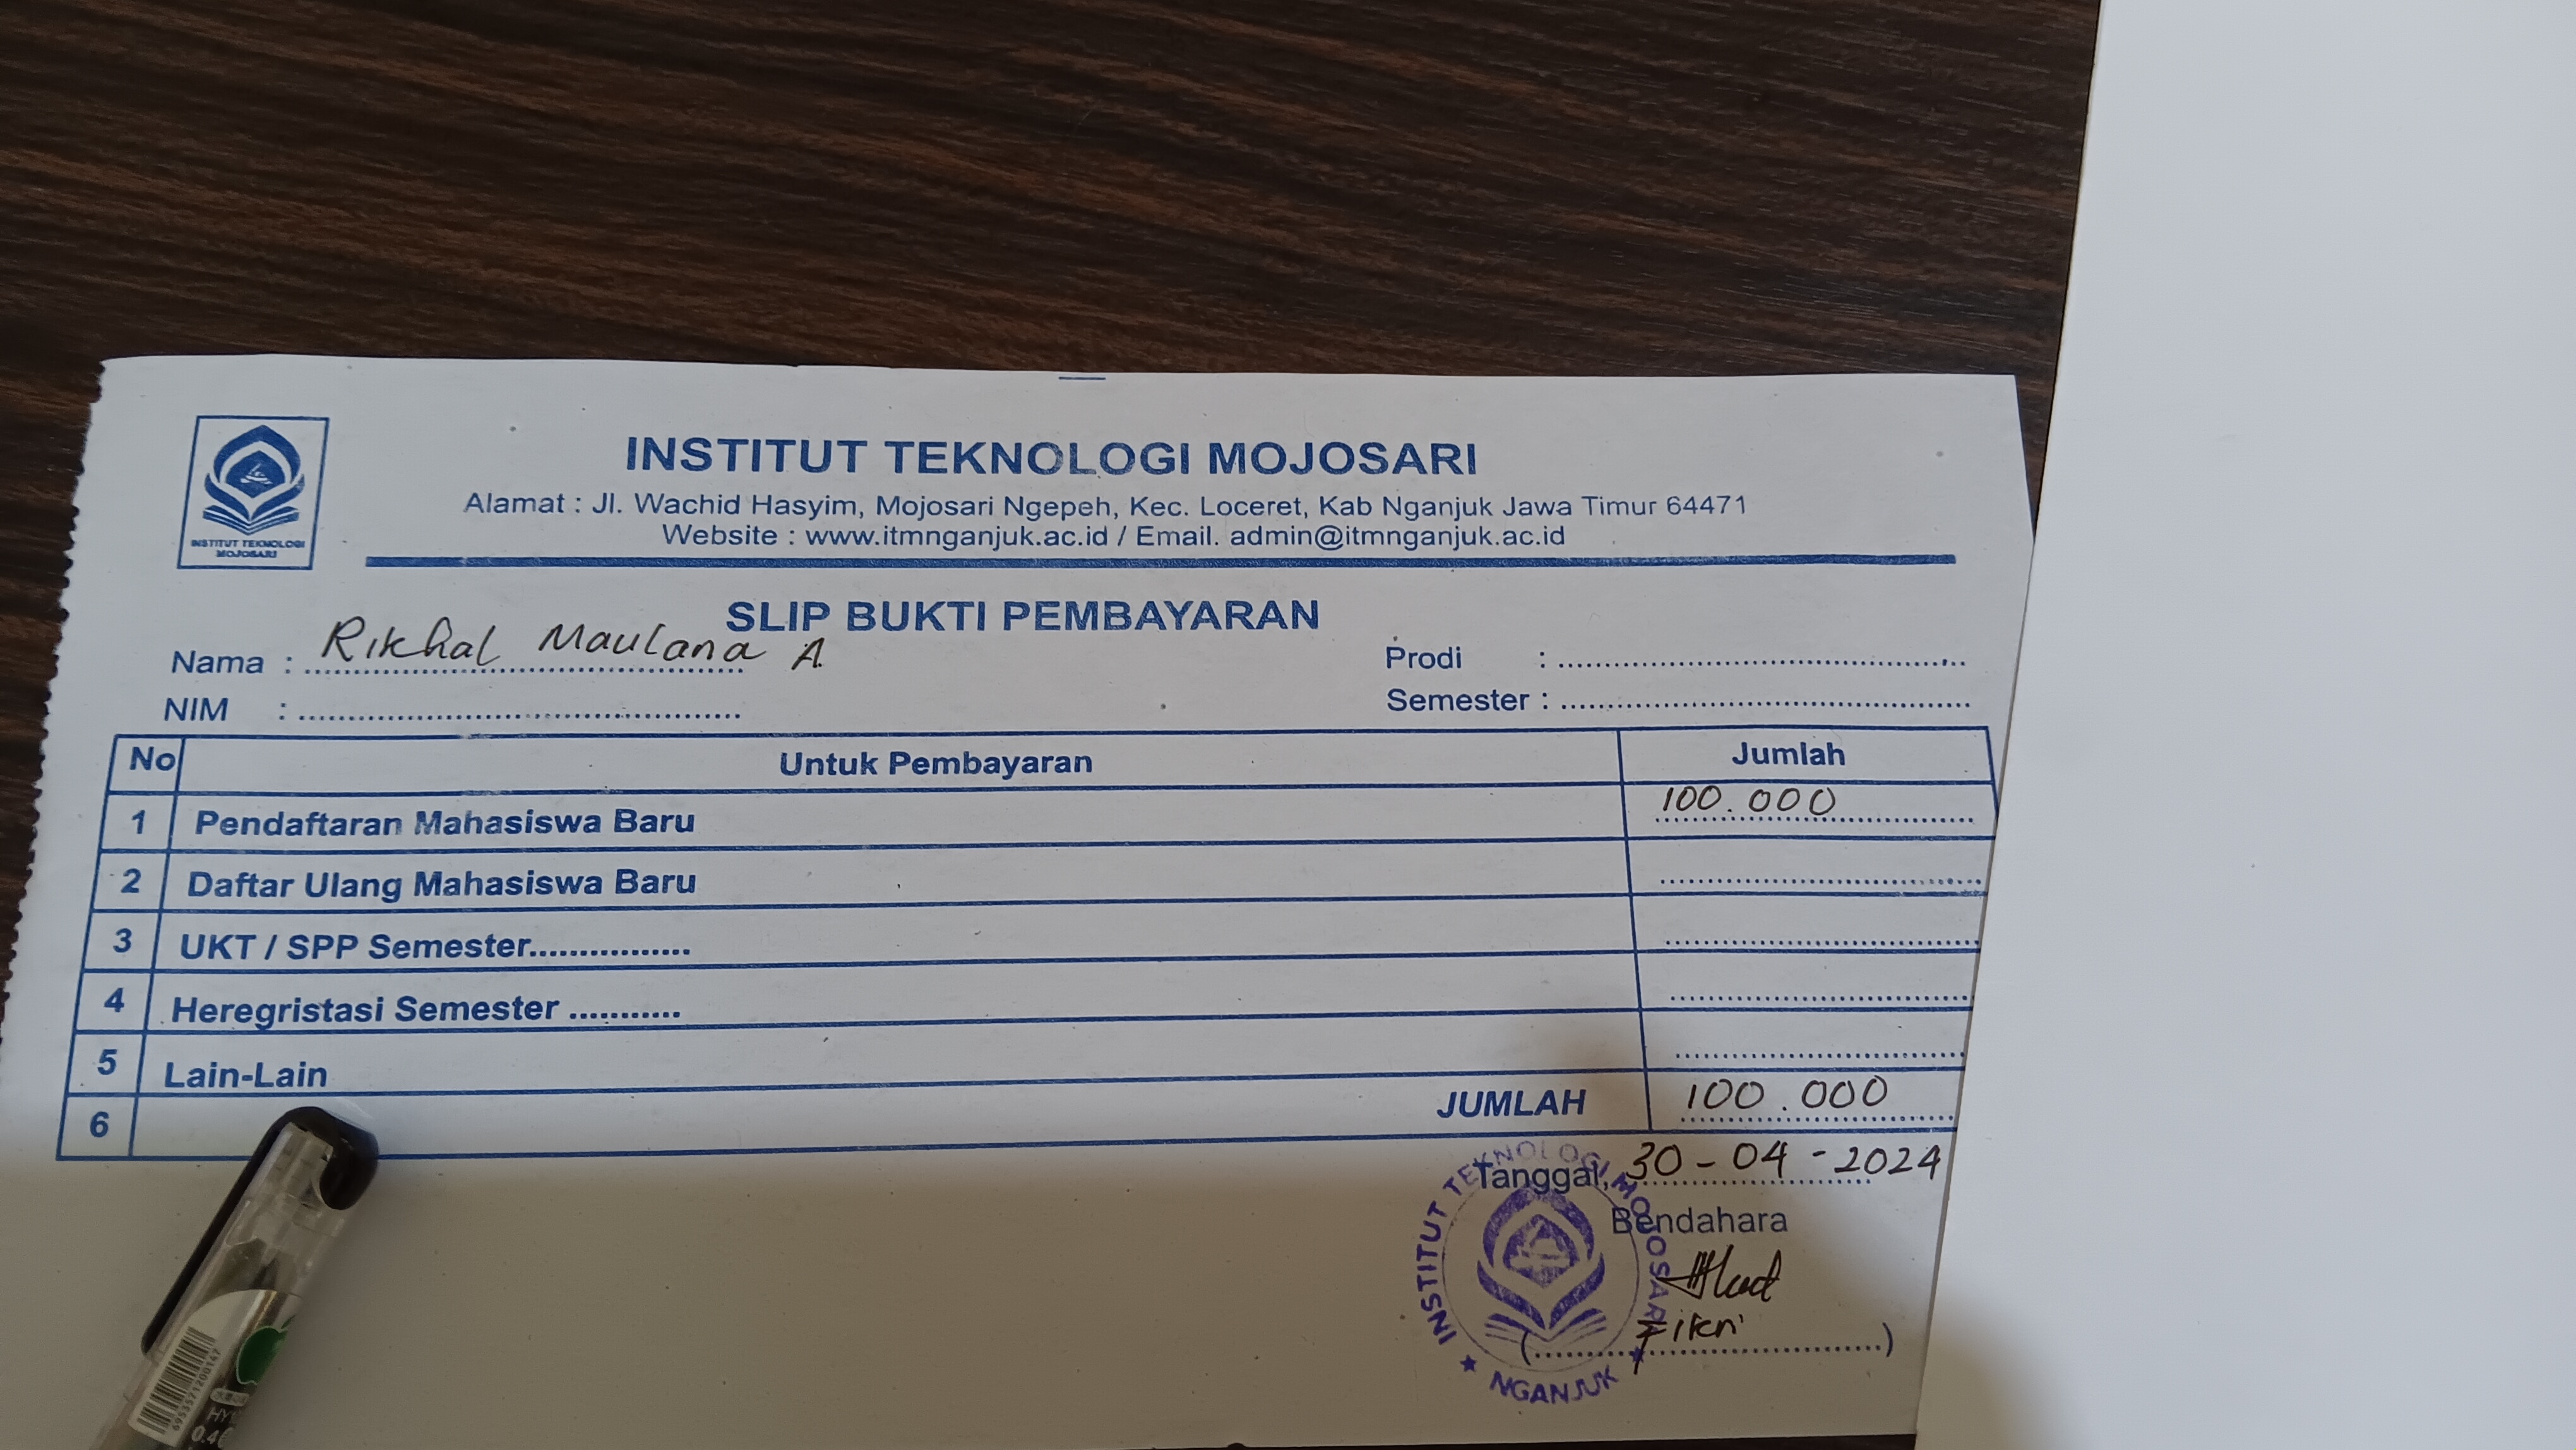 INSTITUT TEKNOLOGI MOJOSARI
Alamat : Jl. Wachid Hasyim, Mojosari Ngepeh, Kec. Loceret, Kab Nganjuk Jawa Timur 64471
Website : www.itmnganjuk.ac.id / Email. admin@itmnganjuk.ac.id
INSTITUT TEKNOLOGI
MOJOSARI
SLIP BUKTI PEMBAYARAN
Nama : Rikhal Maulana A
Prodi :
NIM :
Semester :
No Untuk Pembayaran Jumlah
1 Pendaftaran Mahasiswa Baru 100.000
2 Daftar Ulang Mahasiswa Baru
3 UKT / SPP Semester................
4 Heregristasi Semester ...........
5 Lain-Lain
6 JUMLAH 100.000
Tanggal, 30-04-2024
Bendahara
Fikri
(.....................................)
INSTITUT TEKNOLOGI MOJOSARI
NGANJUK
6953571200147
HY
0.4